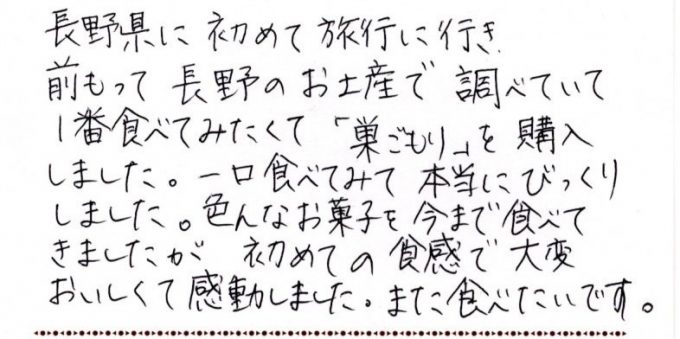 長野県に初めて旅行に行き
前もって長野のお土産で調べていて
1番食べてみたくて「巣ごもり」を購入
しました。一口食べてみて本当にびっくり
しました。色んなお菓子を今まで食べて
きましたが初めての食感で大変
おいしくて感動しました。また食べたいです。